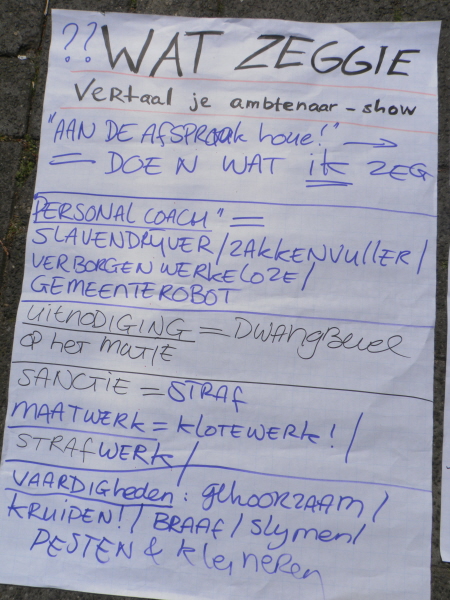 ?? WAT ZEGGIE
Vertaal je ambtenaar - show
"AAN DE AFSPRAAK houe!" →
= DOE N WAT ik ZEG
PERSONAL COACH" =
SLAVENDRYVER / ZAKKENVULLER /
VERBORGEN WERKELOZE /
GEMEENTEROBOT
UITNODIGING = DWANGBEVEL
OP HET MATJE
SANCTIE = STRAF
MAATWERK = KLOTEWERK! /
STRAFWERK /
VAARDIGheden: gehoorzaam /
KRUIPEN! / BRAAF / Slymen /
PESTEN & kleineren